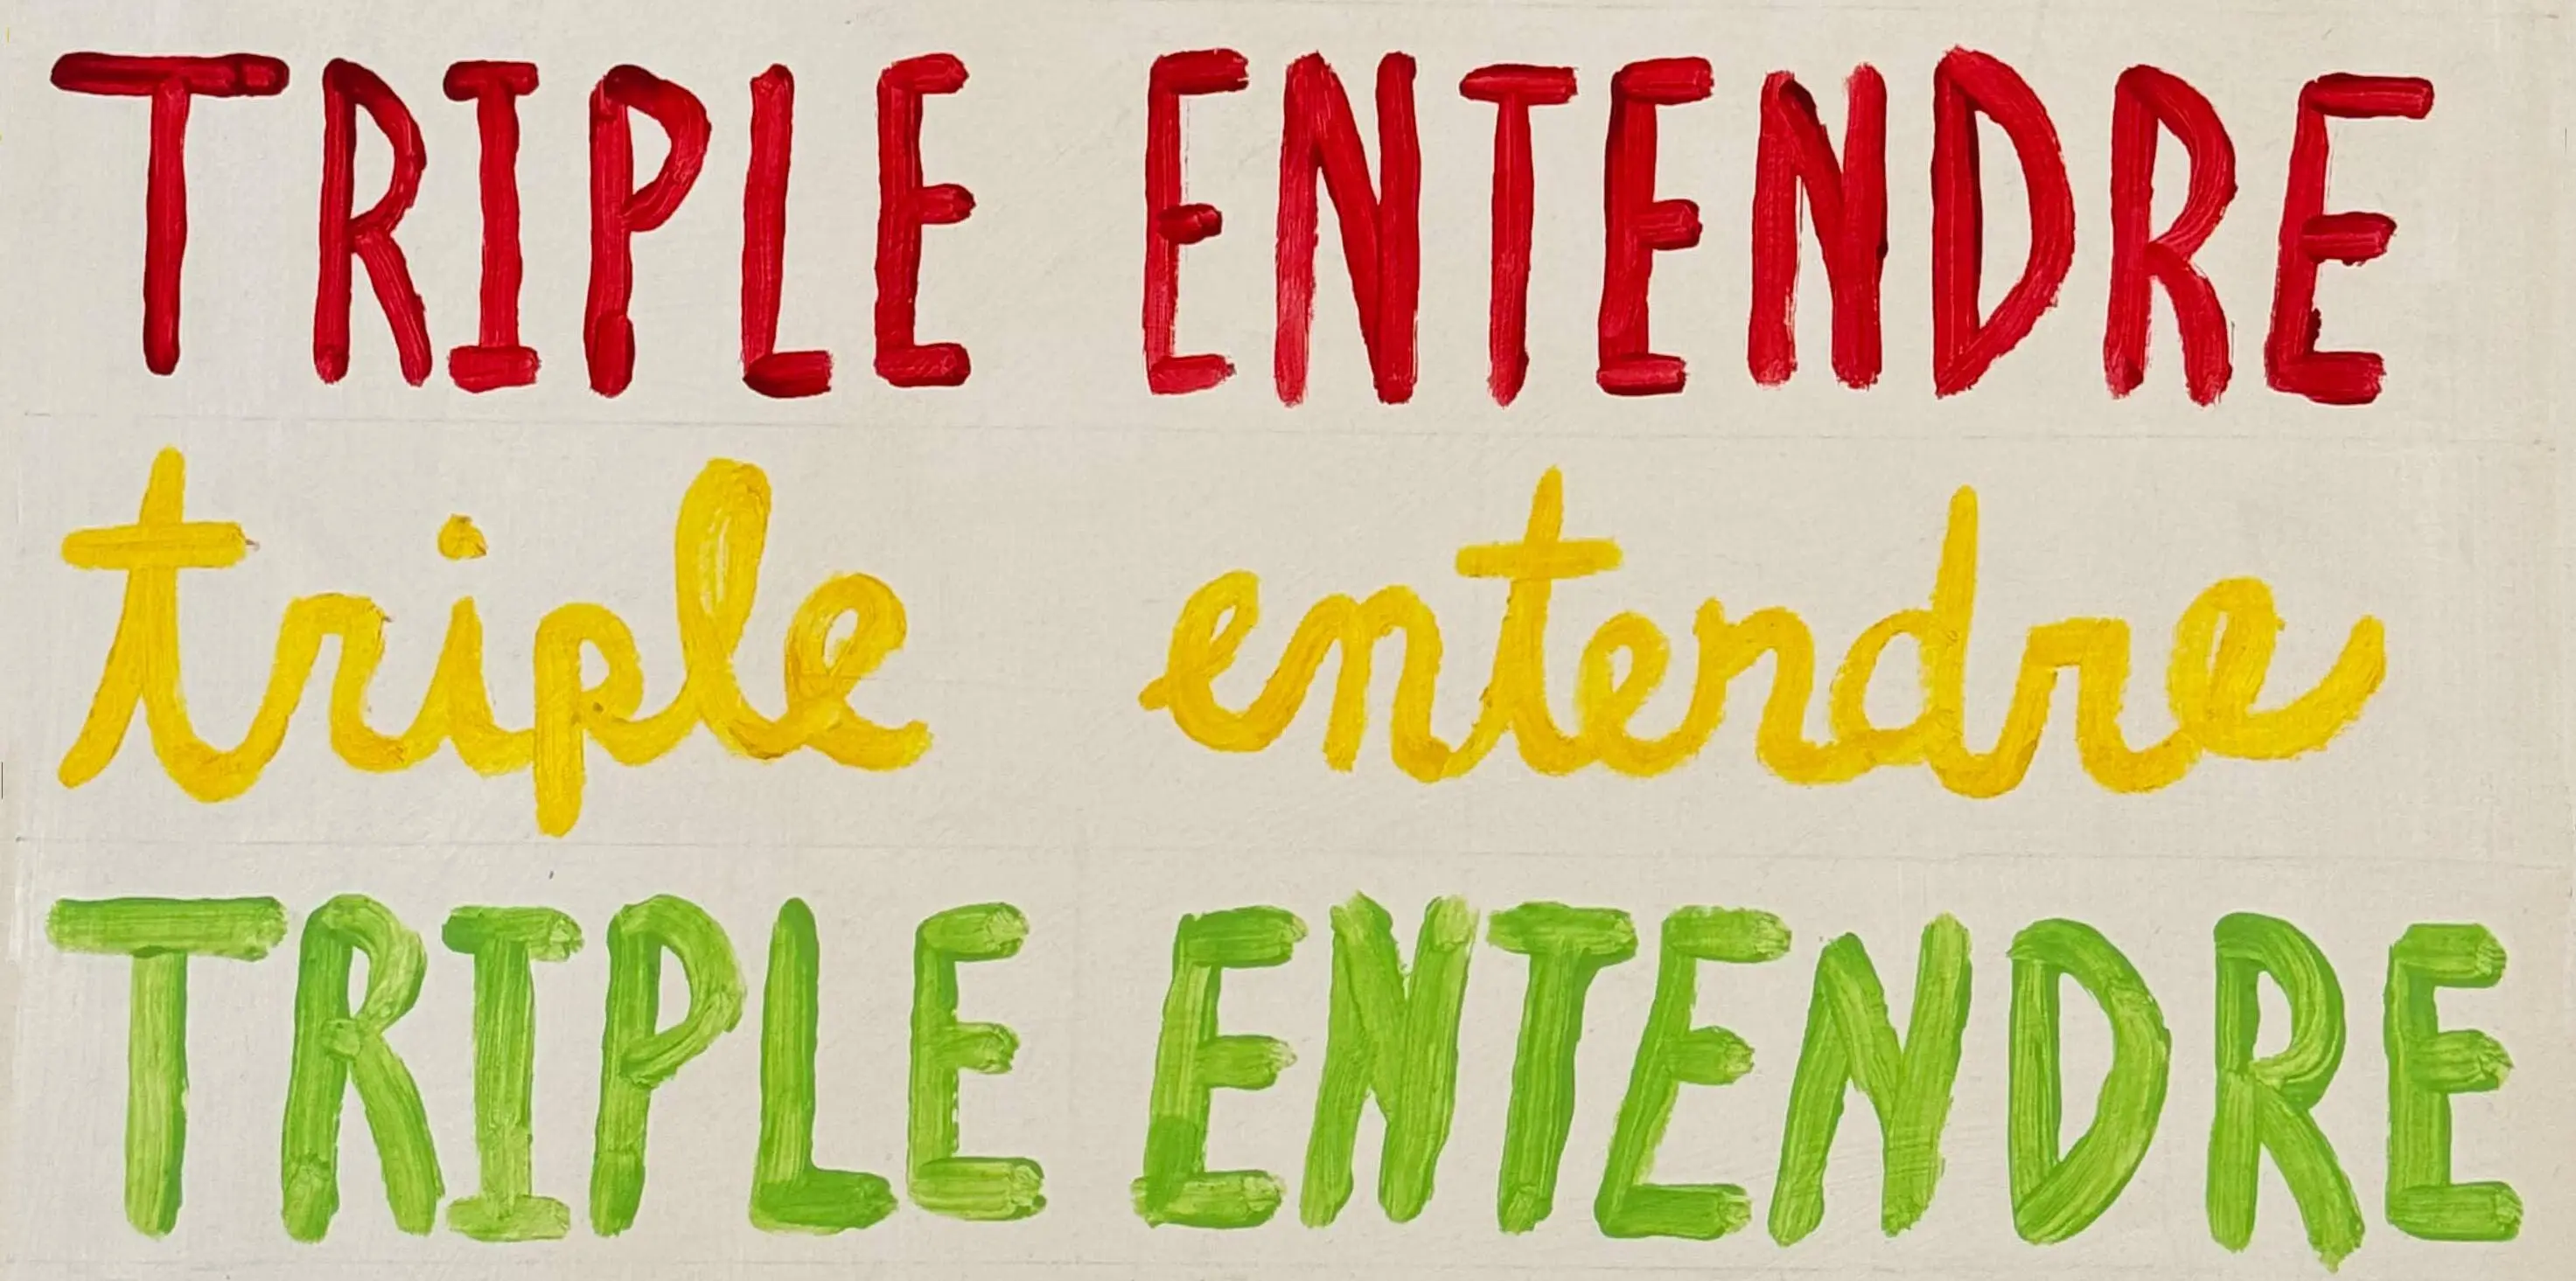 TRIPLE ENTENDRE
triple entendre
TRIPLE ENTENDRE